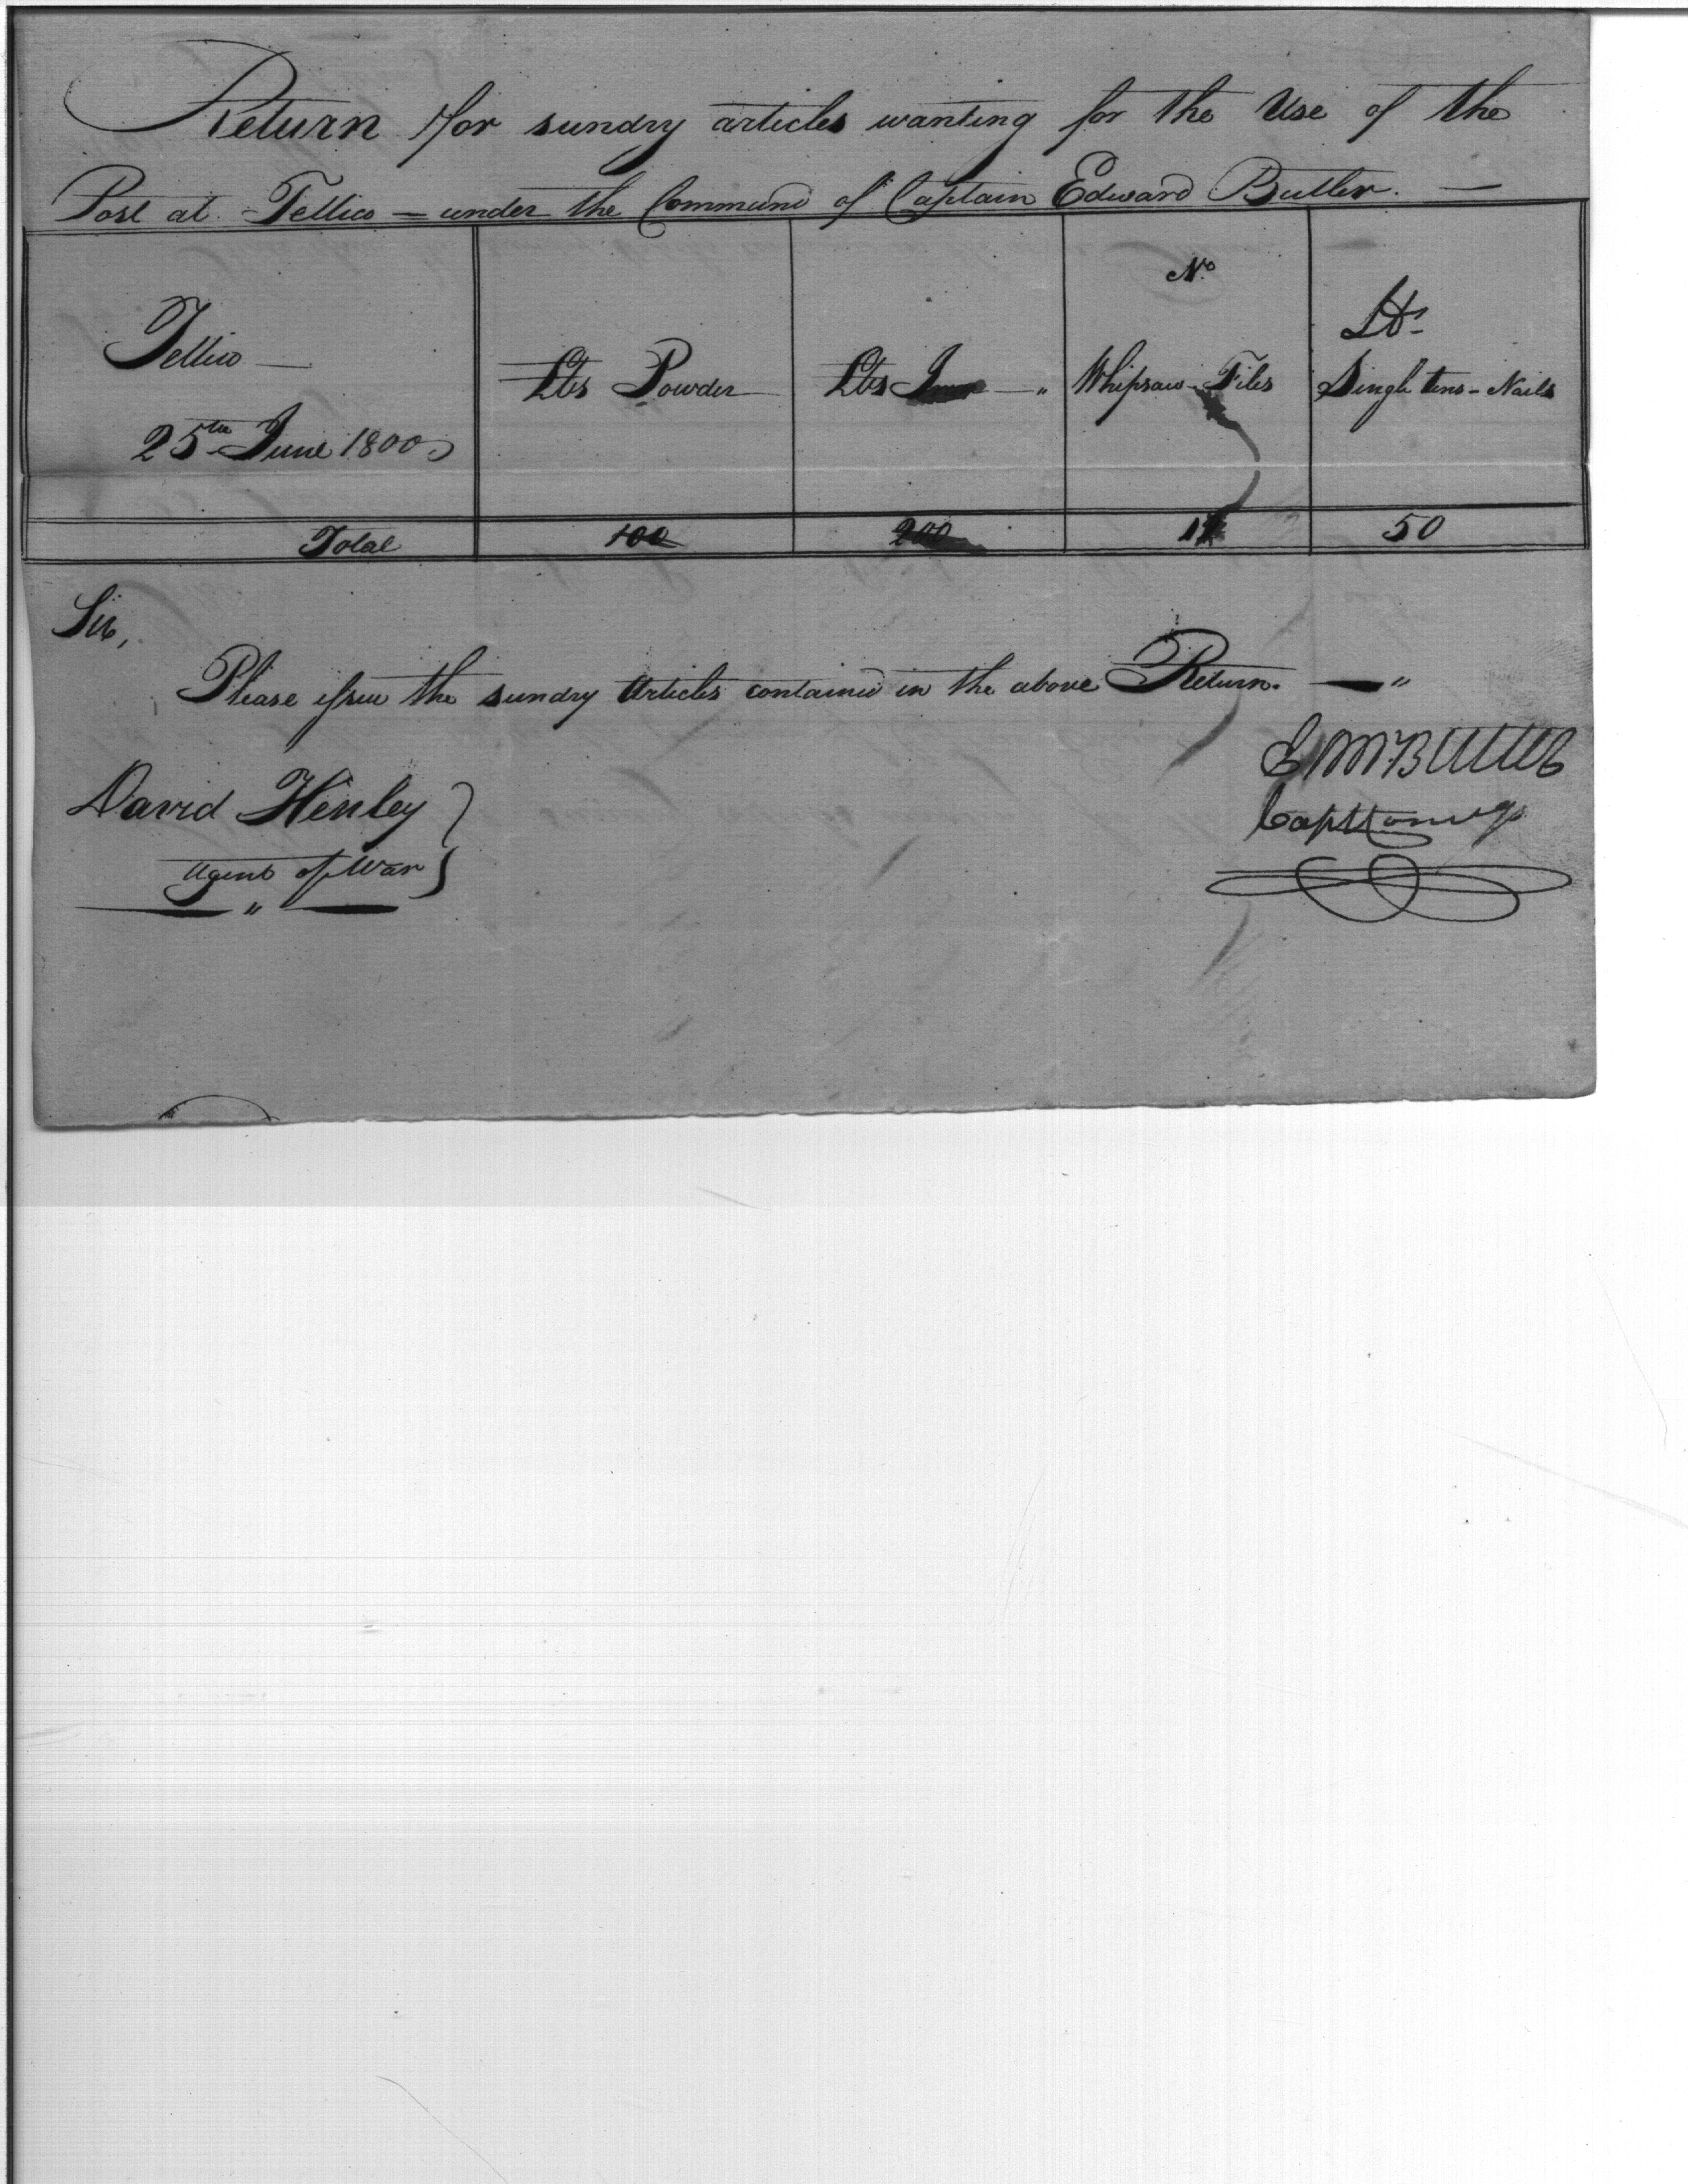 Return for sundry articles wanting for the Use of the
Post at Tellico — under the Command of Captain Edward Butler. —
Tellico —
25th June 1800
Lbs Powder
Lbs
No.
Whipsaw Files
Lbs
Single tens - Nails
Total 100 200 50
Sir,
Please issue the sundry Articles contained in the above Return. — "
David Henley
Agent of War
Butler
Capt